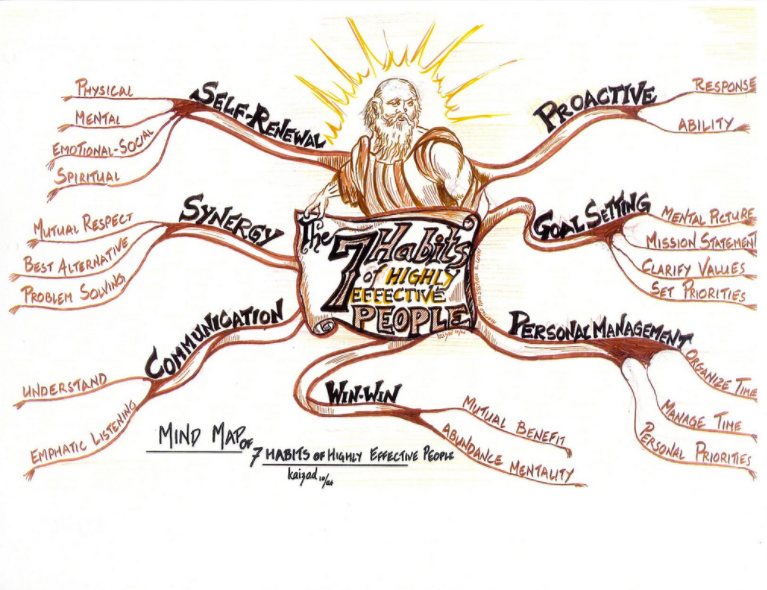 The
7 Habits
of HIGHLY
EFFECTIVE
PEOPLE
kaizad
PROACTIVE
RESPONSE
ABILITY
GOAL SETTING
MENTAL PICTURE
MISSION STATEMENT
CLARIFY VALUES
SET PRIORITIES
PERSONAL MANAGEMENT
ORGANIZE TIME
MANAGE TIME
PERSONAL PRIORITIES
WIN-WIN
MUTUAL BENEFIT
ABUNDANCE MENTALITY
COMMUNICATION
UNDERSTAND
EMPHATIC LISTENING
SYNERGY
MUTUAL RESPECT
BEST ALTERNATIVE
PROBLEM SOLVING
SELF-RENEWAL
PHYSICAL
MENTAL
EMOTIONAL-SOCIAL
SPIRITUAL
MIND MAP OF
7 HABITS OF HIGHLY EFFECTIVE PEOPLE
kaizad